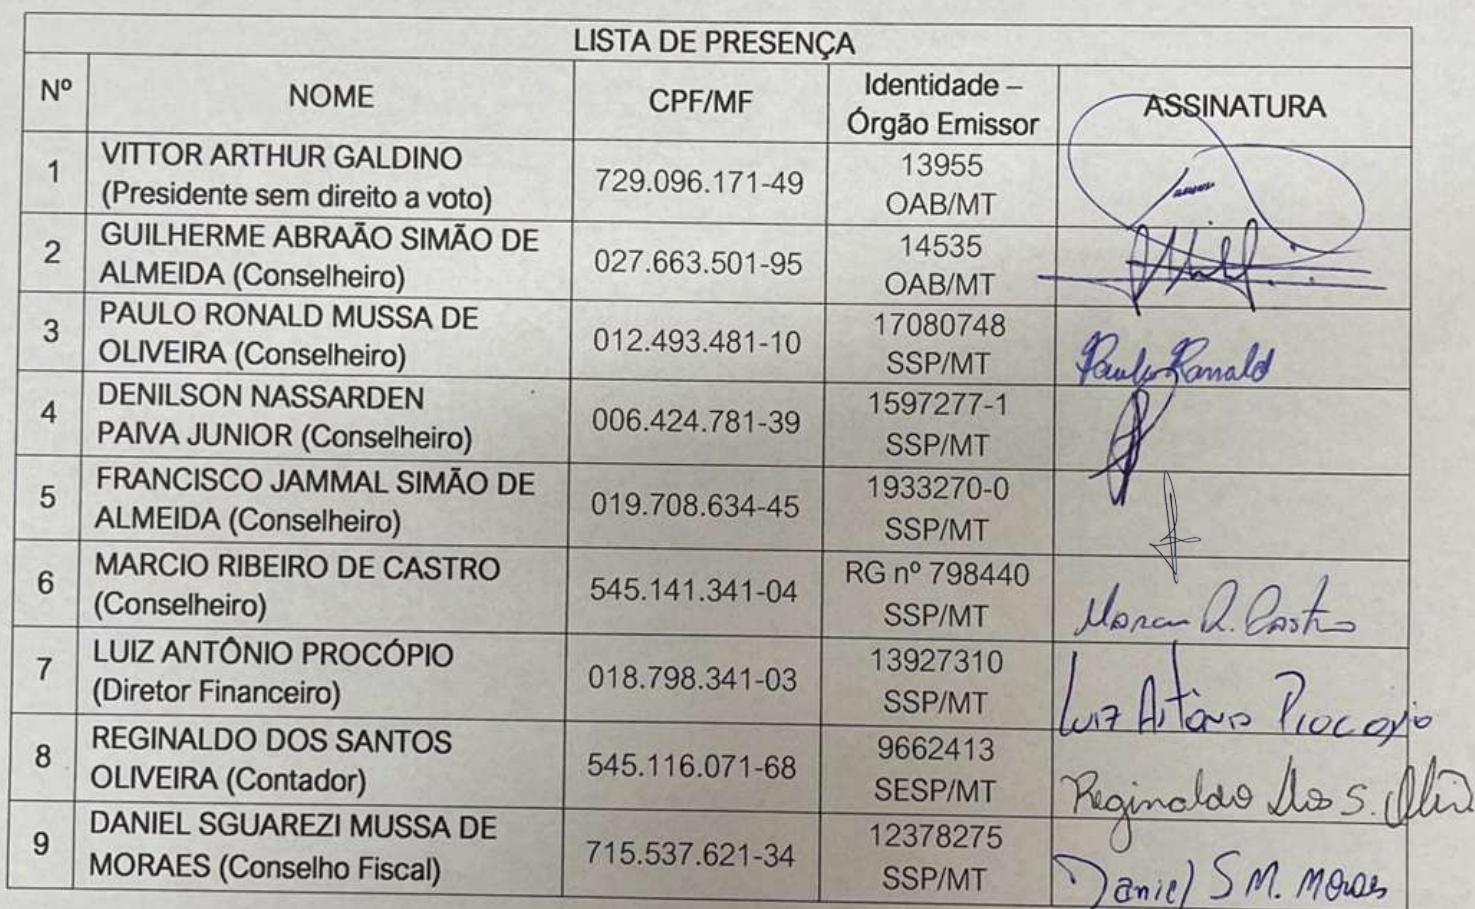 LISTA DE PRESENÇA
Nº NOME CPF/MF Identidade – Órgão Emissor ASSINATURA
1 VITTOR ARTHUR GALDINO
(Presidente sem direito a voto) 729.096.171-49 13955
OAB/MT
2 GUILHERME ABRAÃO SIMÃO DE
ALMEIDA (Conselheiro) 027.663.501-95 14535
OAB/MT
3 PAULO RONALD MUSSA DE
OLIVEIRA (Conselheiro) 012.493.481-10 17080748
SSP/MT Paulo Ronald
4 DENILSON NASSARDEN
PAIVA JUNIOR (Conselheiro) 006.424.781-39 1597277-1
SSP/MT
5 FRANCISCO JAMMAL SIMÃO DE
ALMEIDA (Conselheiro) 019.708.634-45 1933270-0
SSP/MT
6 MARCIO RIBEIRO DE CASTRO
(Conselheiro) 545.141.341-04 RG nº 798440
SSP/MT R. Castro
7 LUIZ ANTÔNIO PROCÓPIO
(Diretor Financeiro) 018.798.341-03 13927310
SSP/MT Luiz Antônio Procopio
8 REGINALDO DOS SANTOS
OLIVEIRA (Contador) 545.116.071-68 9662413
SESP/MT Reginaldo dos S.
9 DANIEL SGUAREZI MUSSA DE
MORAES (Conselho Fiscal) 715.537.621-34 12378275
SSP/MT Daniel S M. Moraes